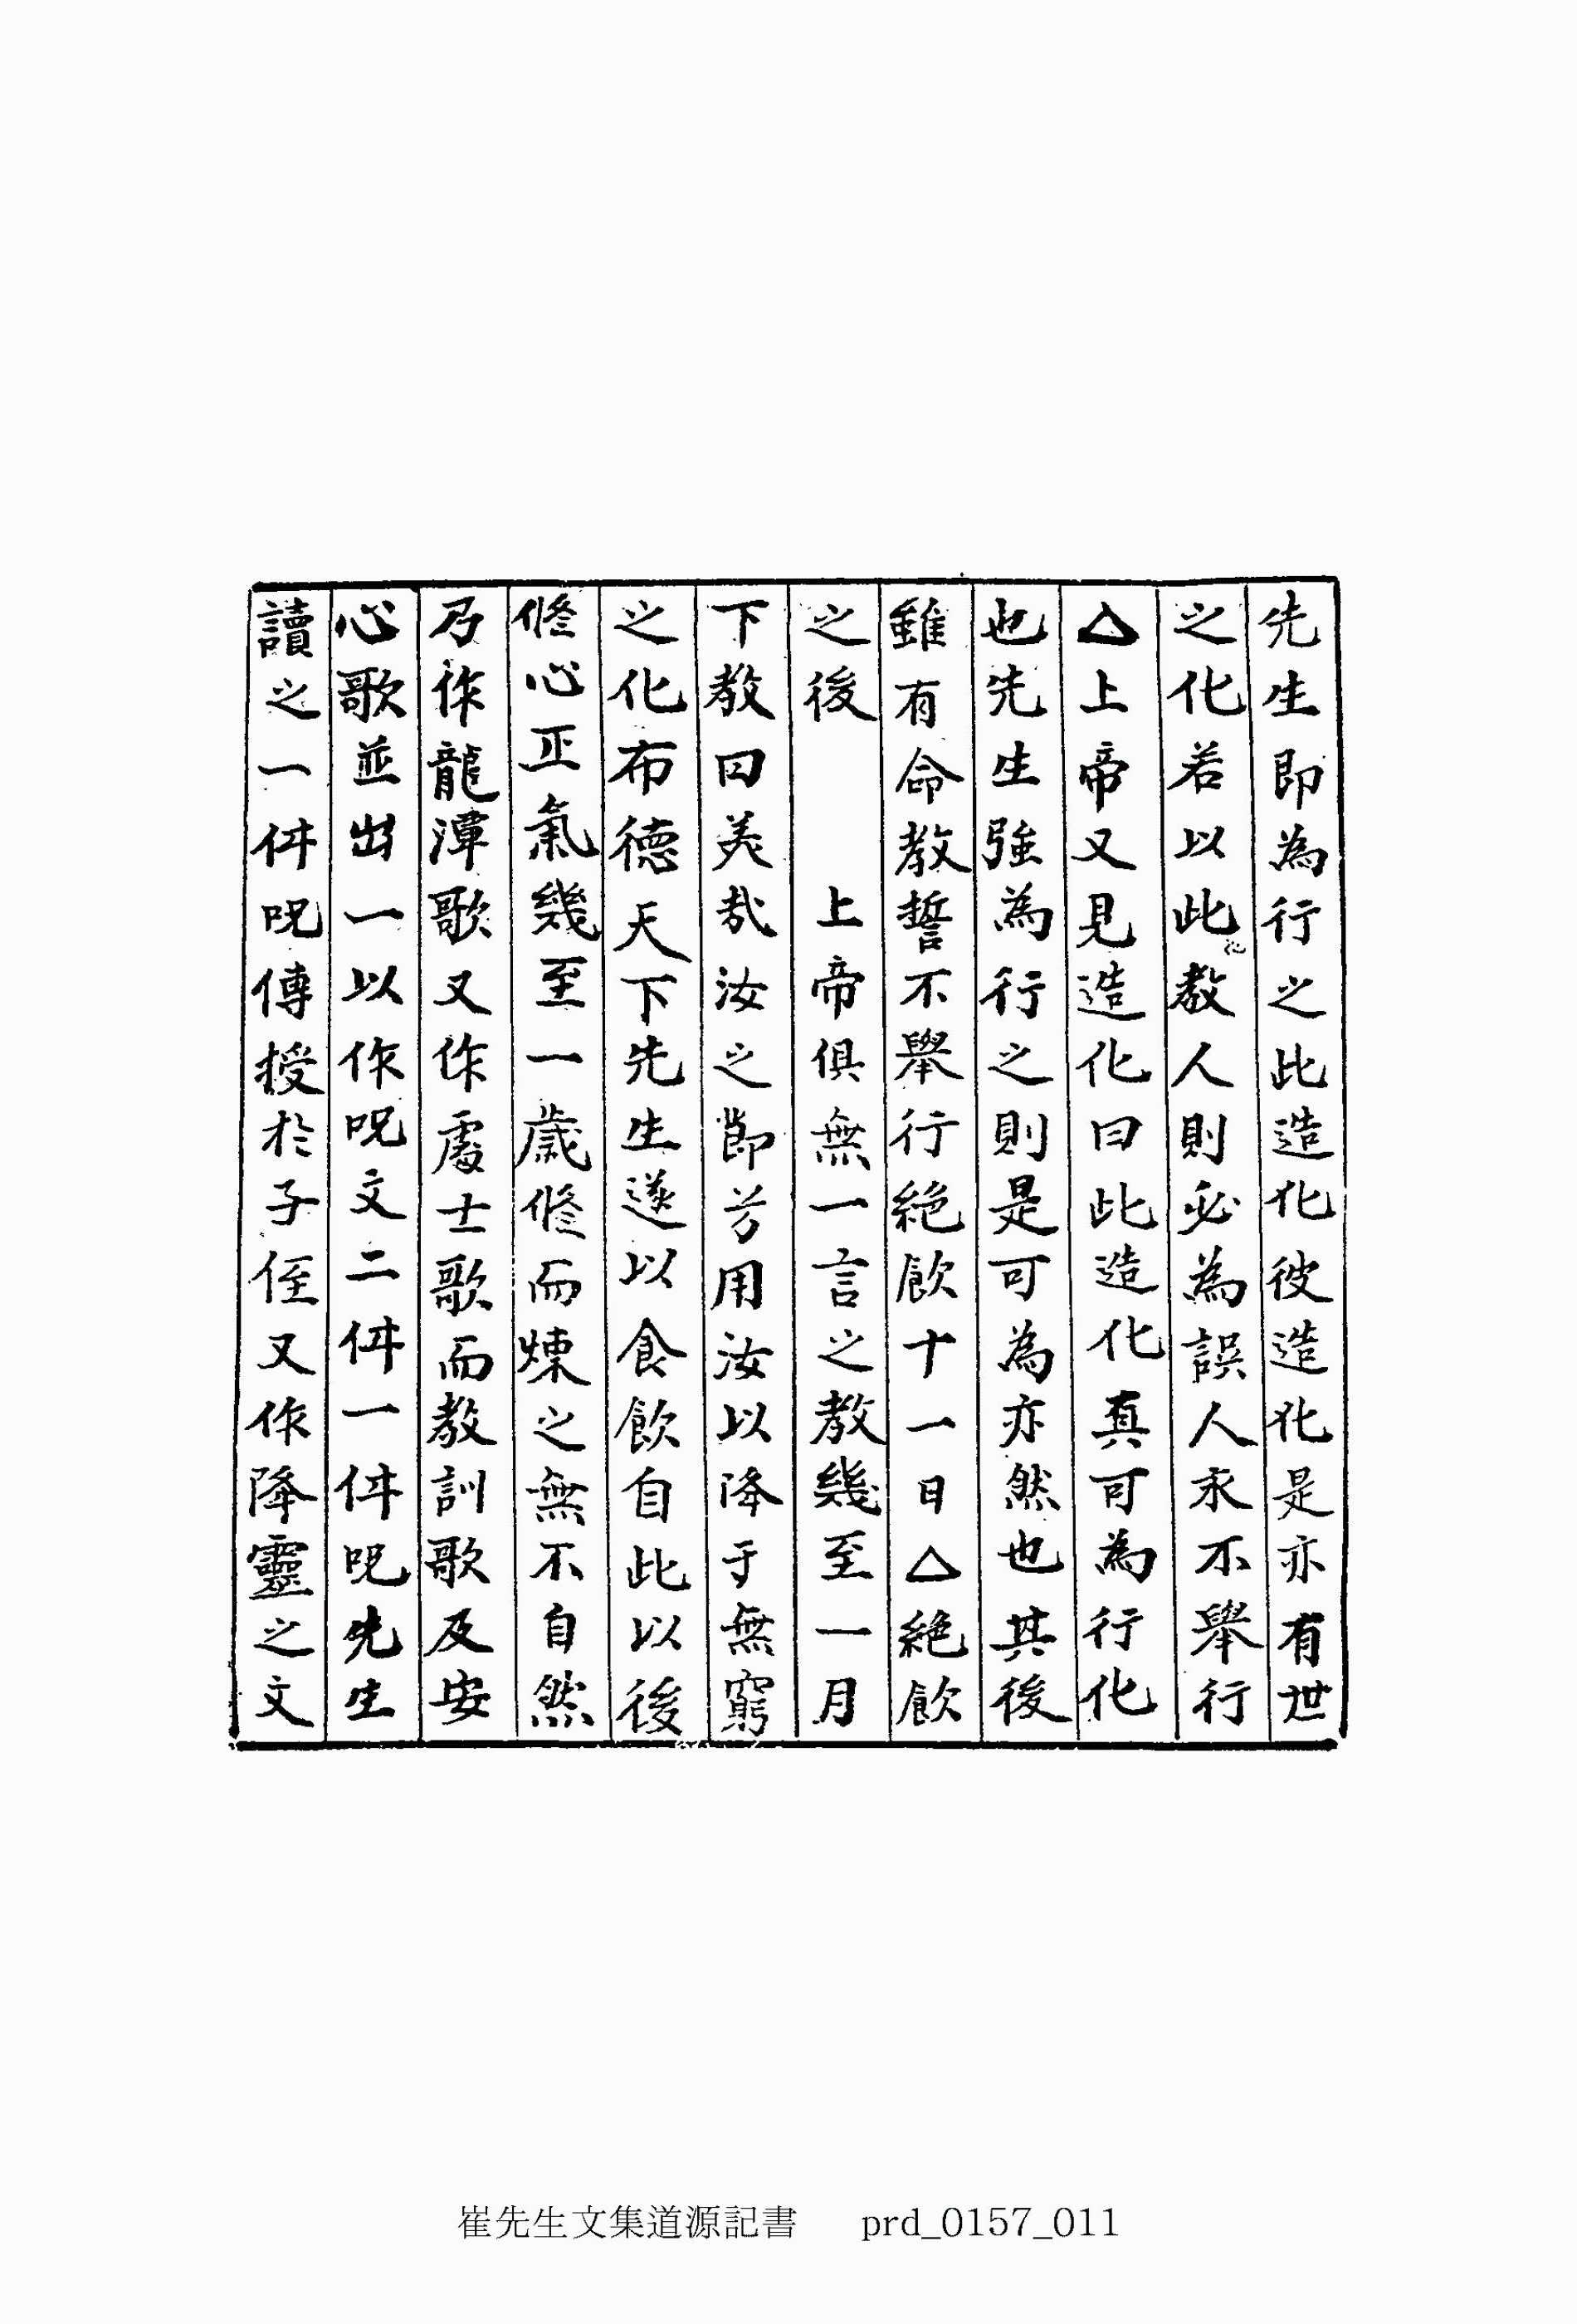 先生即為行之此造化彼造化是亦有世
之化若以此化教人則必為誤人永不舉行
△上帝又見造化曰此造化真可為行化
也先生強為行之則是可為亦然也其後
雖有命教誓不舉行絕飮十一日△絕飮
之後 上帝俱無一言之敎幾至一月
下教曰美哉汝之節芳用汝以降于無窮
之化布德天下先生遂以食飮自此以後
修心正氣幾至一歲修而煉之無不自然
乃作龍潭歌又作處士歌而教訓歌及安
心歌並出一以作呪文二件一件呪先生
讀之一件呪傳授於子侄又作降靈之文
崔先生文集道源記書 prd_0157_011